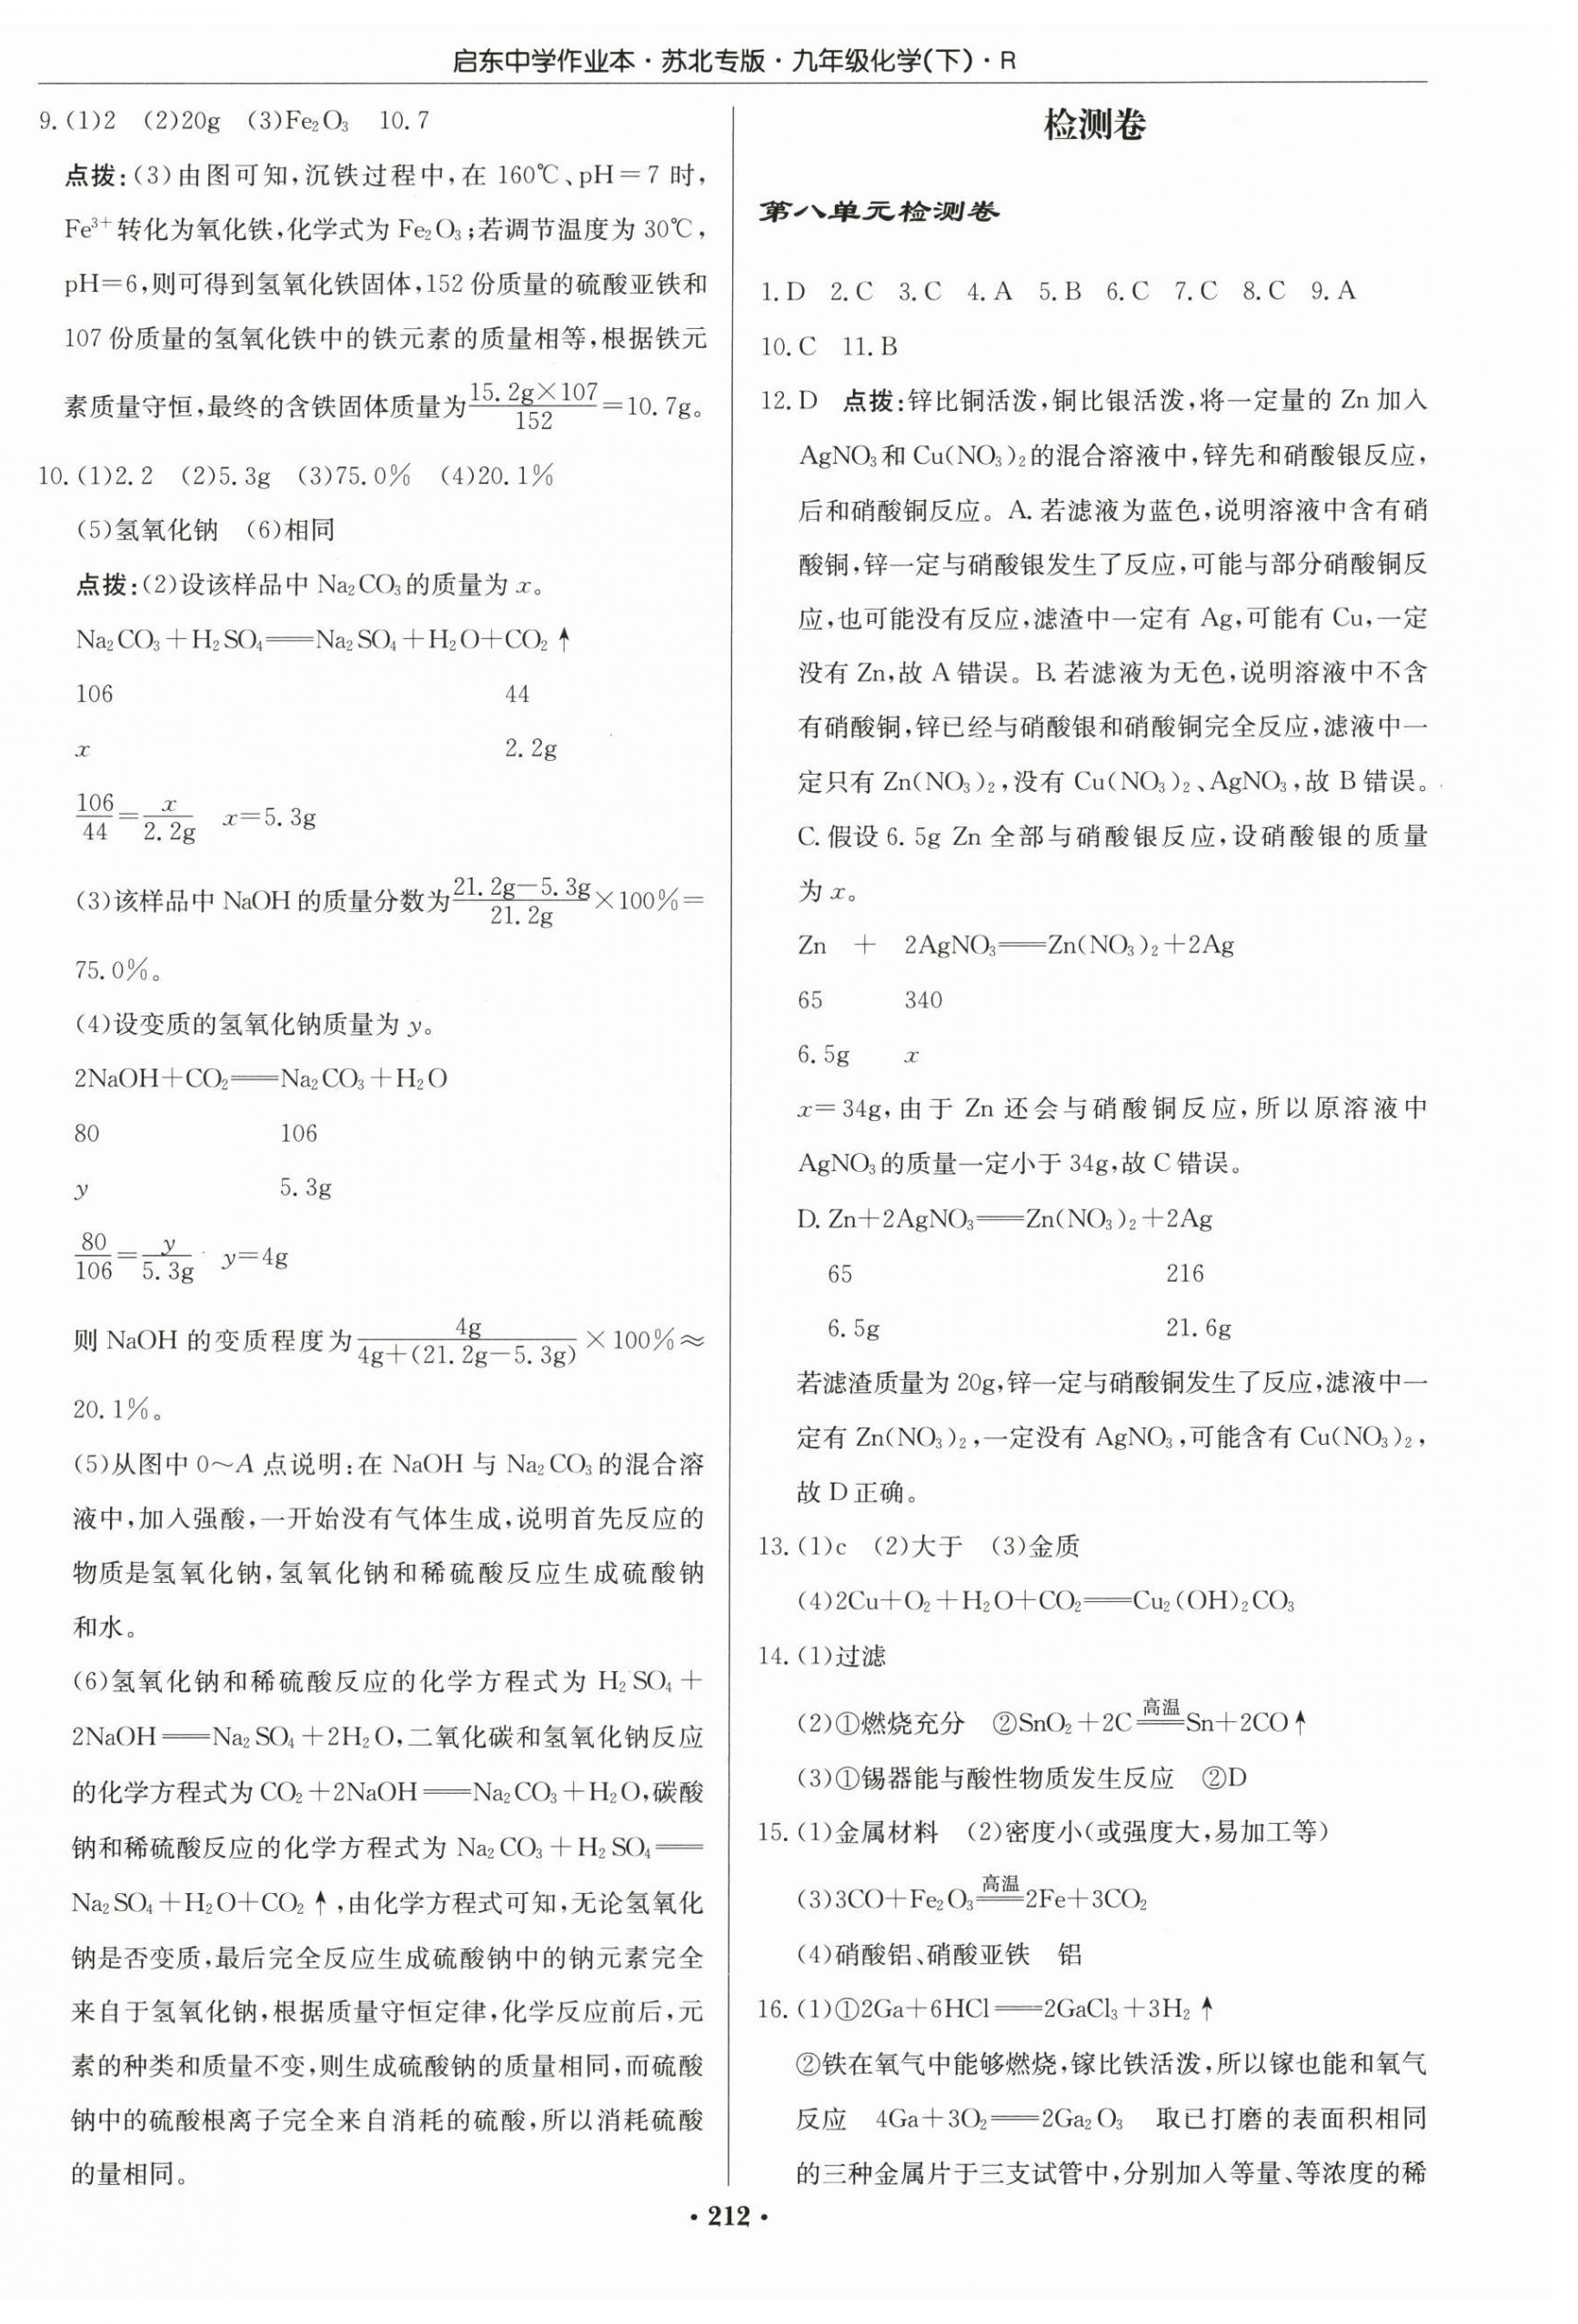 启东中学作业本·苏北专版·九年级化学(下)·R
9.(1)2 (2)20g (3)Fe₂O₃ 10.7
点拨:(3)由图可知,沉铁过程中,在 160℃、pH=7 时,
Fe³⁺转化为氧化铁,化学式为 Fe₂O₃;若调节温度为 30℃,
pH=6,则可得到氢氧化铁固体,152 份质量的硫酸亚铁和
107 份质量的氢氧化铁中的铁元素的质量相等,根据铁元
素质量守恒,最终的含铁固体质量为 15.2g×107/152=10.7g。
10.(1)2.2 (2)5.3g (3)75.0% (4)20.1%
(5)氢氧化钠 (6)相同
点拨:(2)设该样品中 Na₂CO₃的质量为 x。
Na₂CO₃+H₂SO₄══Na₂SO₄+H₂O+CO₂↑
106 44
x 2.2g
106/44=x/2.2g x=5.3g
(3)该样品中 NaOH 的质量分数为 (21.2g-5.3g)/21.2g×100%=
75.0%。
(4)设变质的氢氧化钠质量为 y。
2NaOH+CO₂══Na₂CO₃+H₂O
80 106
y 5.3g
80/106=y/5.3g y=4g
则 NaOH 的变质程度为 4g/(4g+(21.2g-5.3g)) ×100%≈
20.1%。
(5)从图中 0～A 点说明:在 NaOH 与 Na₂CO₃的混合溶
液中,加入强酸,一开始没有气体生成,说明首先反应的
物质是氢氧化钠,氢氧化钠和稀硫酸反应生成硫酸钠
和水。
(6)氢氧化钠和稀硫酸反应的化学方程式为 H₂SO₄+
2NaOH══Na₂SO₄+2H₂O,二氧化碳和氢氧化钠反应
的化学方程式为 CO₂+2NaOH══Na₂CO₃+H₂O,碳酸
钠和稀硫酸反应的化学方程式为 Na₂CO₃+H₂SO₄══
Na₂SO₄+H₂O+CO₂↑,由化学方程式可知,无论氢氧化
钠是否变质,最后完全反应生成硫酸钠中的钠元素完全
来自于氢氧化钠,根据质量守恒定律,化学反应前后,元
素的种类和质量不变,则生成硫酸钠的质量相同,而硫酸
钠中的硫酸根离子完全来自消耗的硫酸,所以消耗硫酸
的量相同。
检测卷
第八单元检测卷
1.D 2.C 3.C 4.A 5.B 6.C 7.C 8.C 9.A
10.C 11.B
12.D 点拨:锌比铜活泼,铜比银活泼,将一定量的 Zn 加入
AgNO₃和 Cu(NO₃)₂的混合溶液中,锌先和硝酸银反应,
后和硝酸铜反应。A.若滤液为蓝色,说明溶液中含有硝
酸铜,锌一定与硝酸银发生了反应,可能与部分硝酸铜反
应,也可能没有反应,滤渣中一定有 Ag,可能有 Cu,一定
没有 Zn,故 A 错误。B.若滤液为无色,说明溶液中不含
有硝酸铜,锌已经与硝酸银和硝酸铜完全反应,滤液中一
定只有 Zn(NO₃)₂,没有 Cu(NO₃)₂、AgNO₃,故 B 错误。
C.假设 6.5g Zn 全部与硝酸银反应,设硝酸银的质量
为 x。
Zn + 2AgNO₃══Zn(NO₃)₂+2Ag
65 340
6.5g x
x=34g,由于 Zn 还会与硝酸铜反应,所以原溶液中
AgNO₃的质量一定小于 34g,故 C 错误。
D.Zn+2AgNO₃══Zn(NO₃)₂+2Ag
65 216
6.5g 21.6g
若滤渣质量为 20g,锌一定与硝酸铜发生了反应,滤液中一
定有 Zn(NO₃)₂,一定没有 AgNO₃,可能含有 Cu(NO₃)₂,
故 D 正确。
13.(1)c (2)大于 (3)金质
(4)2Cu+O₂+H₂O+CO₂══Cu₂(OH)₂CO₃
14.(1)过滤
(2)①燃烧充分 ②SnO₂+2C═高温═Sn+2CO↑
(3)①锡器能与酸性物质发生反应 ②D
15.(1)金属材料 (2)密度小(或强度大,易加工等)
(3)3CO+Fe₂O₃═高温═2Fe+3CO₂
(4)硝酸铝、硝酸亚铁 铝
16.(1)①2Ga+6HCl══2GaCl₃+3H₂↑
②铁在氧气中能够燃烧,镓比铁活泼,所以镓也能和氧气
反应 4Ga+3O₂══2Ga₂O₃ 取已打磨的表面积相同
的三种金属片于三支试管中,分别加入等量、等浓度的稀
·212·